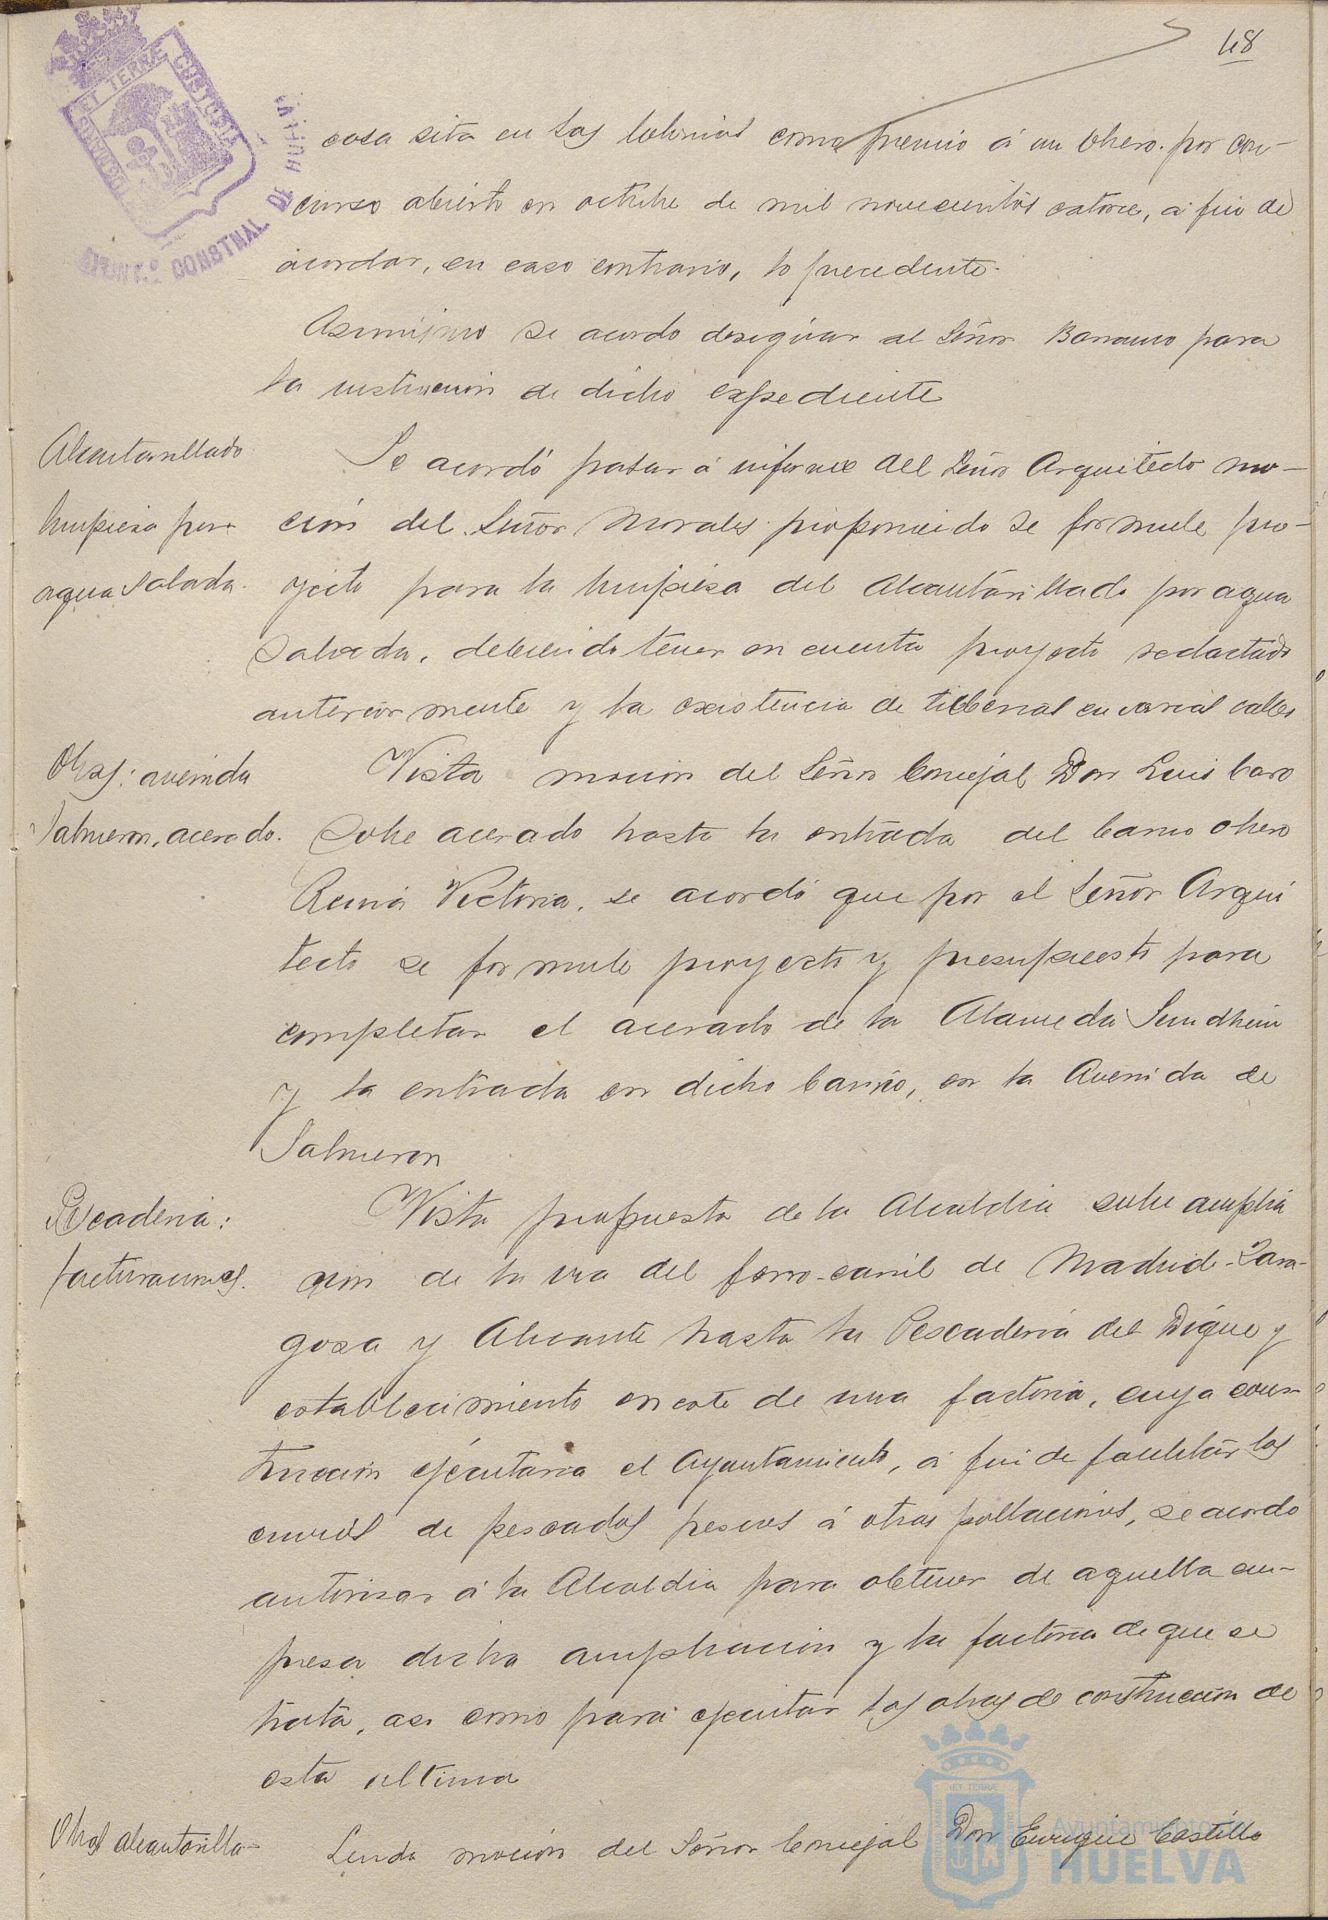 48
casa sita en las Colonias como premio á un obrero por con-
curso abierto en octubre de mil novecientos catorce, á fin de
acordar, en caso contrario, lo precedente.
Asimismo se acordo designar al Señor Barranco para
la instrucción de dicho expediente
Alcantarillado
limpieza por
agua salada.
Se acordó pasar á informe del Señor Arquitecto mo-
ción del Señor Morales proponiendo se formule pro-
yecto para la limpieza del Alcantarillado por agua
salada, debiendo tener en cuenta proyecto redactado
anteriormente y la existencia de tuberias en varias calles
Obras: avenida
Salmeron, acerado.
Vista moción del Señor Concejal Don Luis Caro
sobre acerado hasta la entrada del barrio obrero
Reina Victoria, se acordó que por el Señor Arqui
tecto se formule proyecto y presupuesto para
completar el acerado de la Alameda Sundheim
y la entrada en dicho barrio, en la Avenida de
Salmeron
Pescaderia:
facturaciones.
Vista propuesta de la Alcaldia sobre amplia
cion de la via del ferro-carril de Madrid-Zara-
goza y Alicante hasta la Pescaderia del Dique y
establecimiento en este de una factoria, cuya cons-
trucción ejecutaria el Ayuntamiento, á fin de facilitar los
envios de pescados frescos á otras poblaciones, se acordo
autorizar á la Alcaldia para obtener de aquella em-
presa dicha ampliacion y la factoria de que se
trata, asi como para ejecutar las obras de construcción de
esta ultima
Obras alcantarilla-
Leida moción del Señor Concejal Don Enrique Castillo
ET TERRÆ CUSTODIA
CONSTNAL DE HUELVA
Ayuntamiento
HUELVA